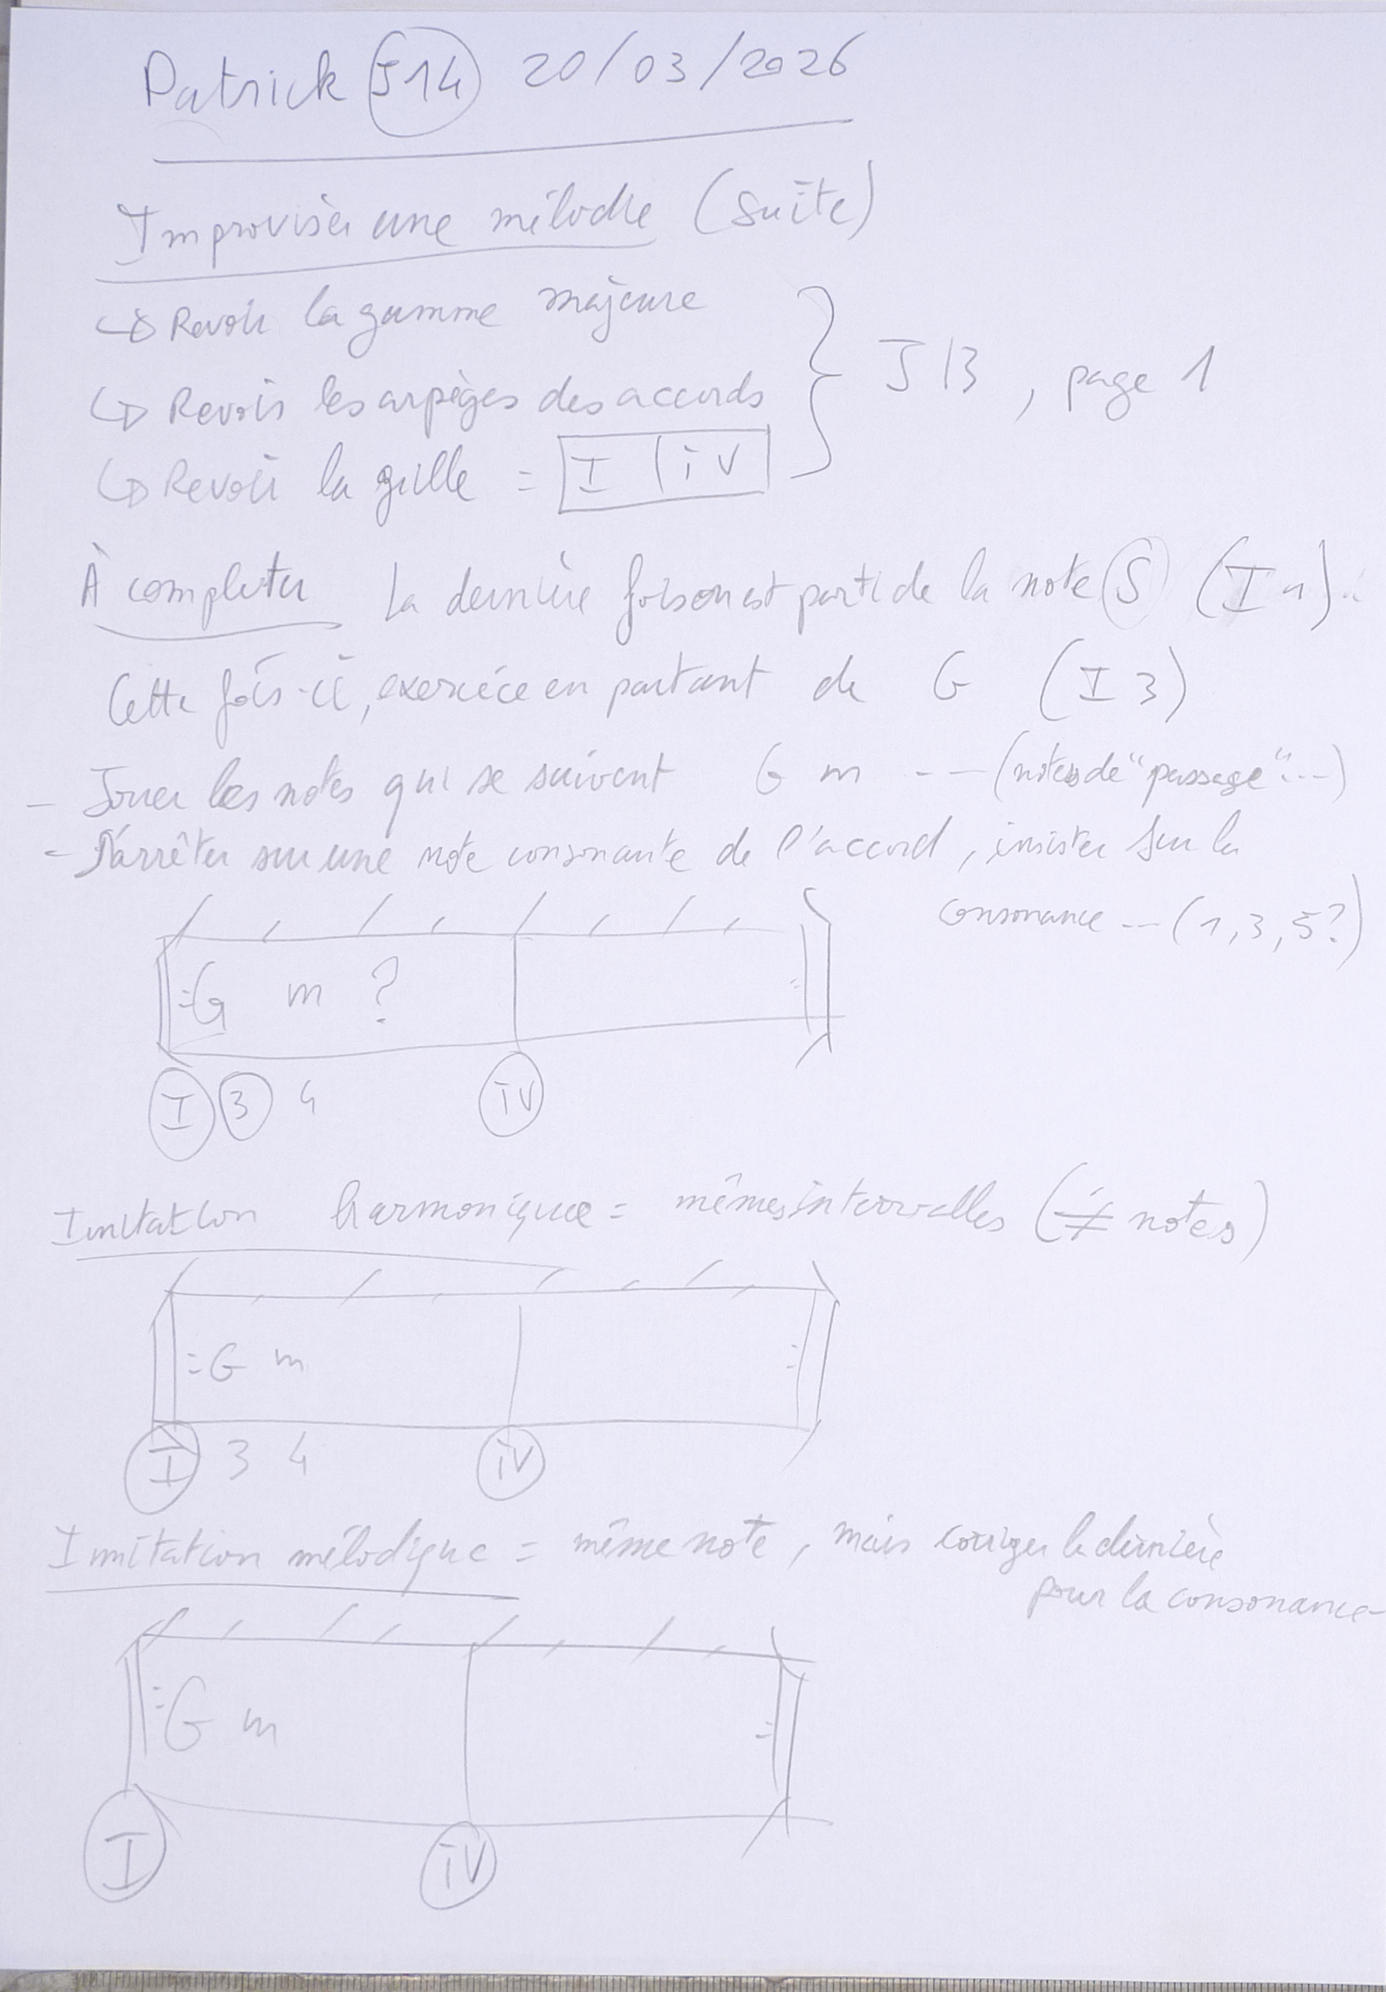 Patrick J14 20/03/2026
Improviser une mélodie (suite)
↳ Revoir la gamme majeure
↳ Revoir les arpèges des accords } J13, page 1
↳ Revoir la grille = I | iv
À compléter La dernière fois on est parti de la note S (I 1)..
Cette fois-ci, exercice en partant de G (I 3)
- Jouer les notes qui se suivent G m -- (notes de "passage"...)
- S'arrêter sur une note consonante de l'accord, insister sur la
consonance -- (1, 3, 5?)
G m ?
I 3 4 iv
Imitation harmonique = mêmes intervalles (≠ notes)
G m
I 3 4 iv
Imitation mélodique = même note, mais corriger la dernière
pour la consonance-
G m
I iv